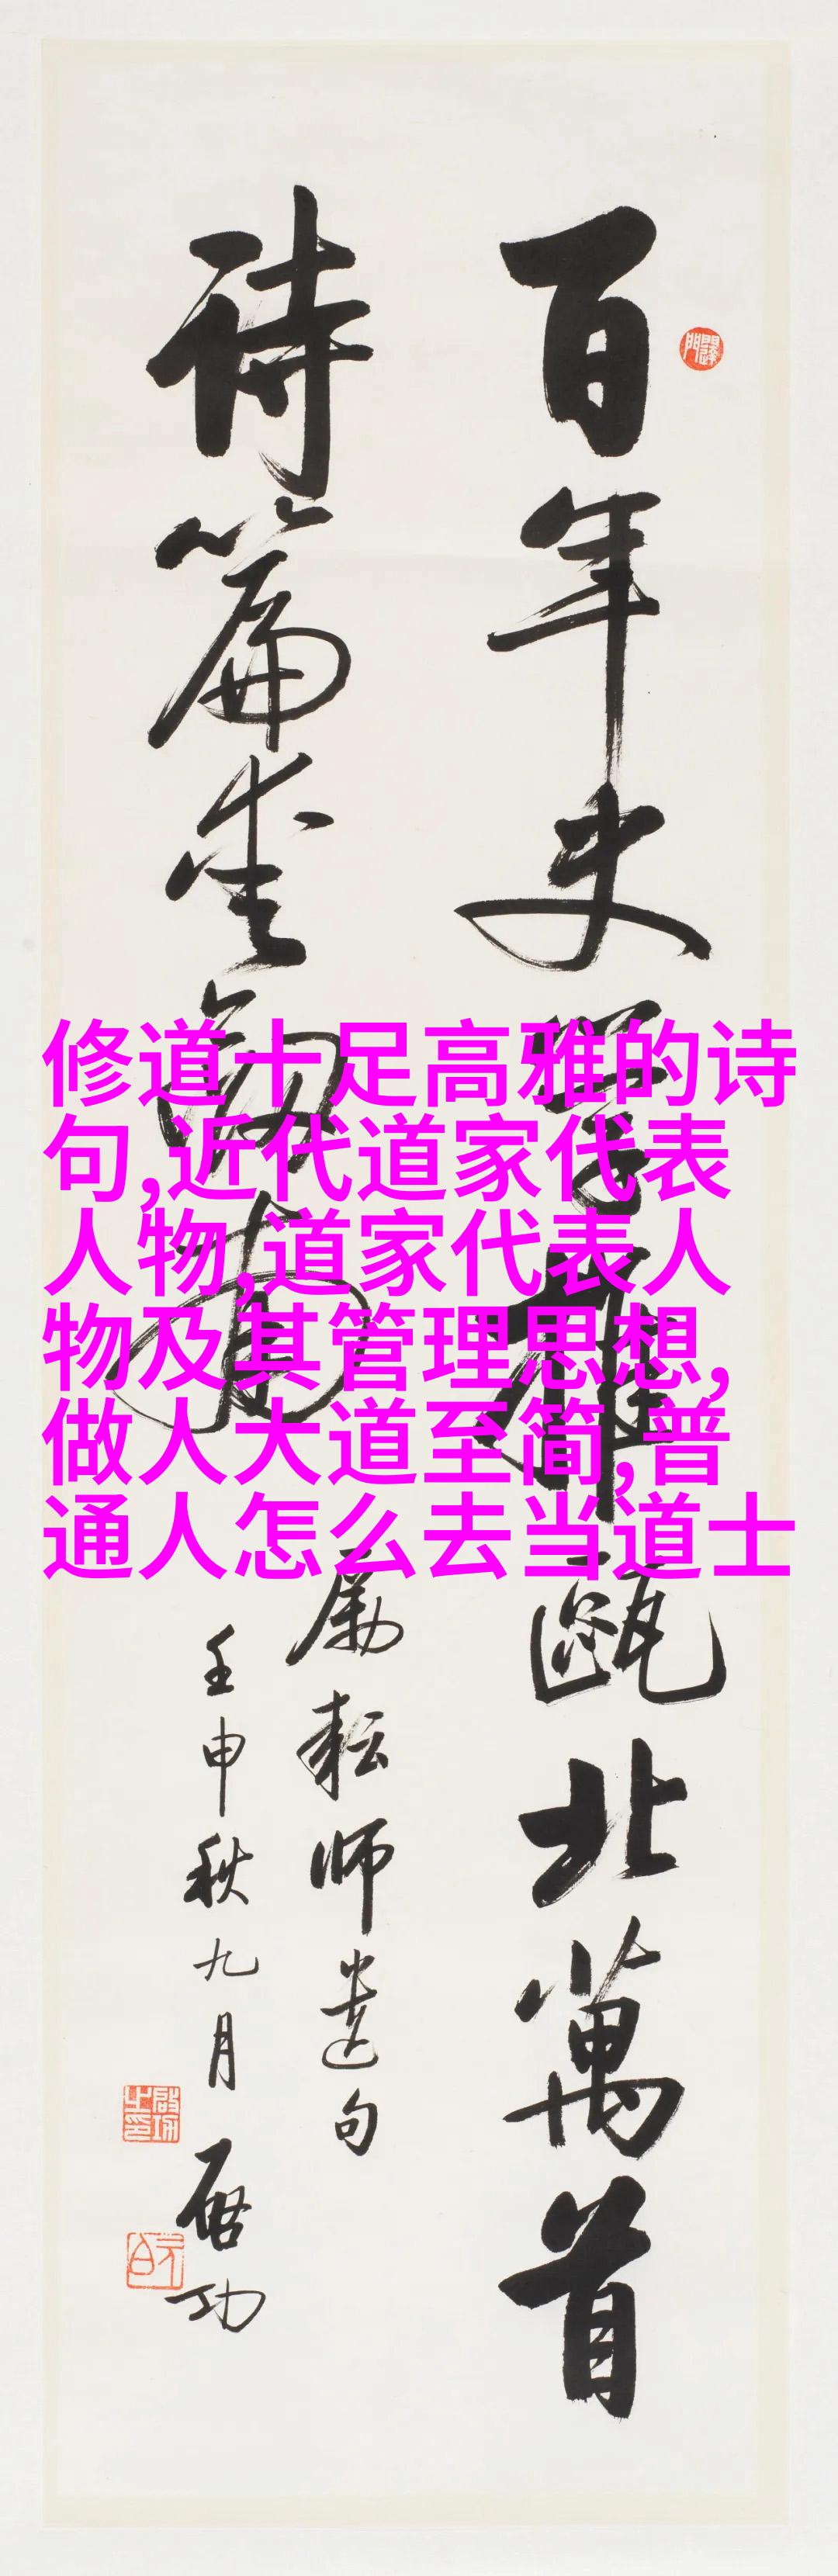 百年史学推瓯北萬首
诗篇爱剑南
励耘师遗句
壬申秋九月 启功
啟功之印
元白
修道十足高雅的诗
句,近代道家代表
人物,道家代表人
物及其管理思想,
做人大道至简,普
通人怎么去当道士